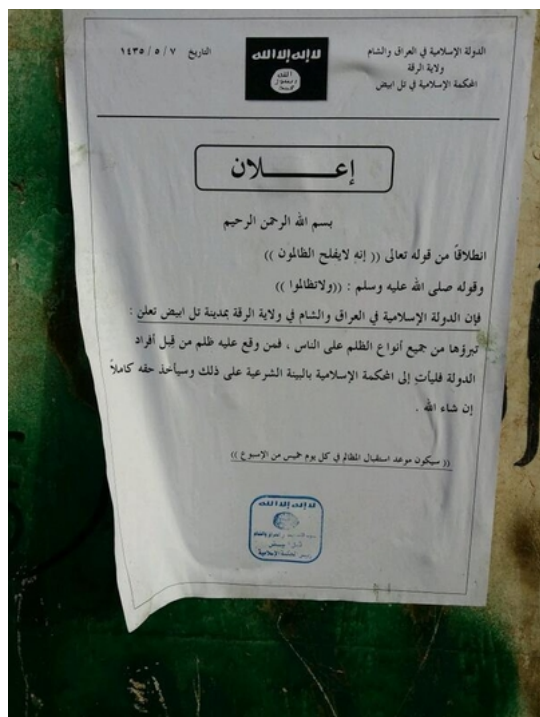 الدولة الإسلامية في العراق والشام
ولاية الرقة
المحكمة الإسلامية في تل ابيض
التاريخ ٧ / ٥ / ١٤٣٥
لا إله إلا الله
الله
رسول
محمد
إعـــــــلان
بسم الله الرحمن الرحيم
انطلاقاً من قوله تعالى (( إنه لايفلح الظالمون ))
وقوله صلى الله عليه وسلم : ((ولاتظالموا ))
فإن الدولة الإسلامية في العراق والشام في ولاية الرقة بمدينة تل ابيض تعلن :
تبرؤها من جميع أنواع الظلم على الناس ، فمن وقع عليه ظلم من قِبل أفراد
الدولة فليأتِ إلى المحكمة الإسلامية بالبينة الشرعية على ذلك وسيأخذ حقه كاملاً
إن شاء الله .
(( سيكون موعد استقبال المظالم في كل يوم خميس من الإسبوع ))
لا إله إلا الله
تل ابيض